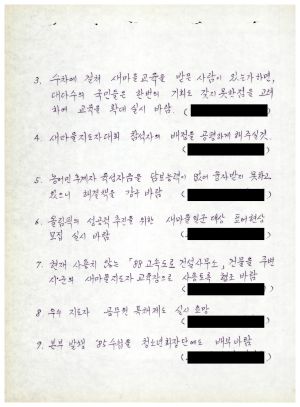 3. 수차에 걸쳐 새마을교육을 받은 사람이 있는가하면,
대다수의 국민들은 한번의 기회도 갖지못한점을 고려
하여 교육을 확대 실시 바람. (
4. 새마을지도자대회 참석자의 배정을 공평하게 해주실것.
(
5. 농어민후계자 육성자금을 담보능력이 없어 융자받지 못하고
있으니 해결책을 강구 바람 (
6. 올림픽의 성공적 추진을 위한 새마을일꾼대상 표어현상
모집 실시 바람 (
7. 현재 사용치 않는 「88고속도로 건설사무소」 건물을 주변
시·군의 새마을지도자 교육장으로 사용토록 협조 바람
(
8 우수 지도자 공무원 특채제도 실시 요망
(
9. 본부 발행 '85수첩을 청소년회장단에도 배부바람
(